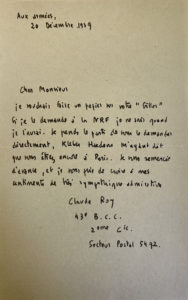 Aux armées,
20 Décembre 1939
Cher Monsieur
je voudrais faire un papier sur votre "Gilles"
Si je le demande à la NRF je ne sais quand
je l'aurai. Je prends le parti de vous le demander
directement, Kléber Haedens m'ayant dit
que vous êtiez encore à Paris. Je vous remercie
d'avance, et je vous prie de croire à mes
sentiments de très sympathique admiration
Claude Roy
43e B.C.C.
2ème Cie.
Secteur Postal 5492.